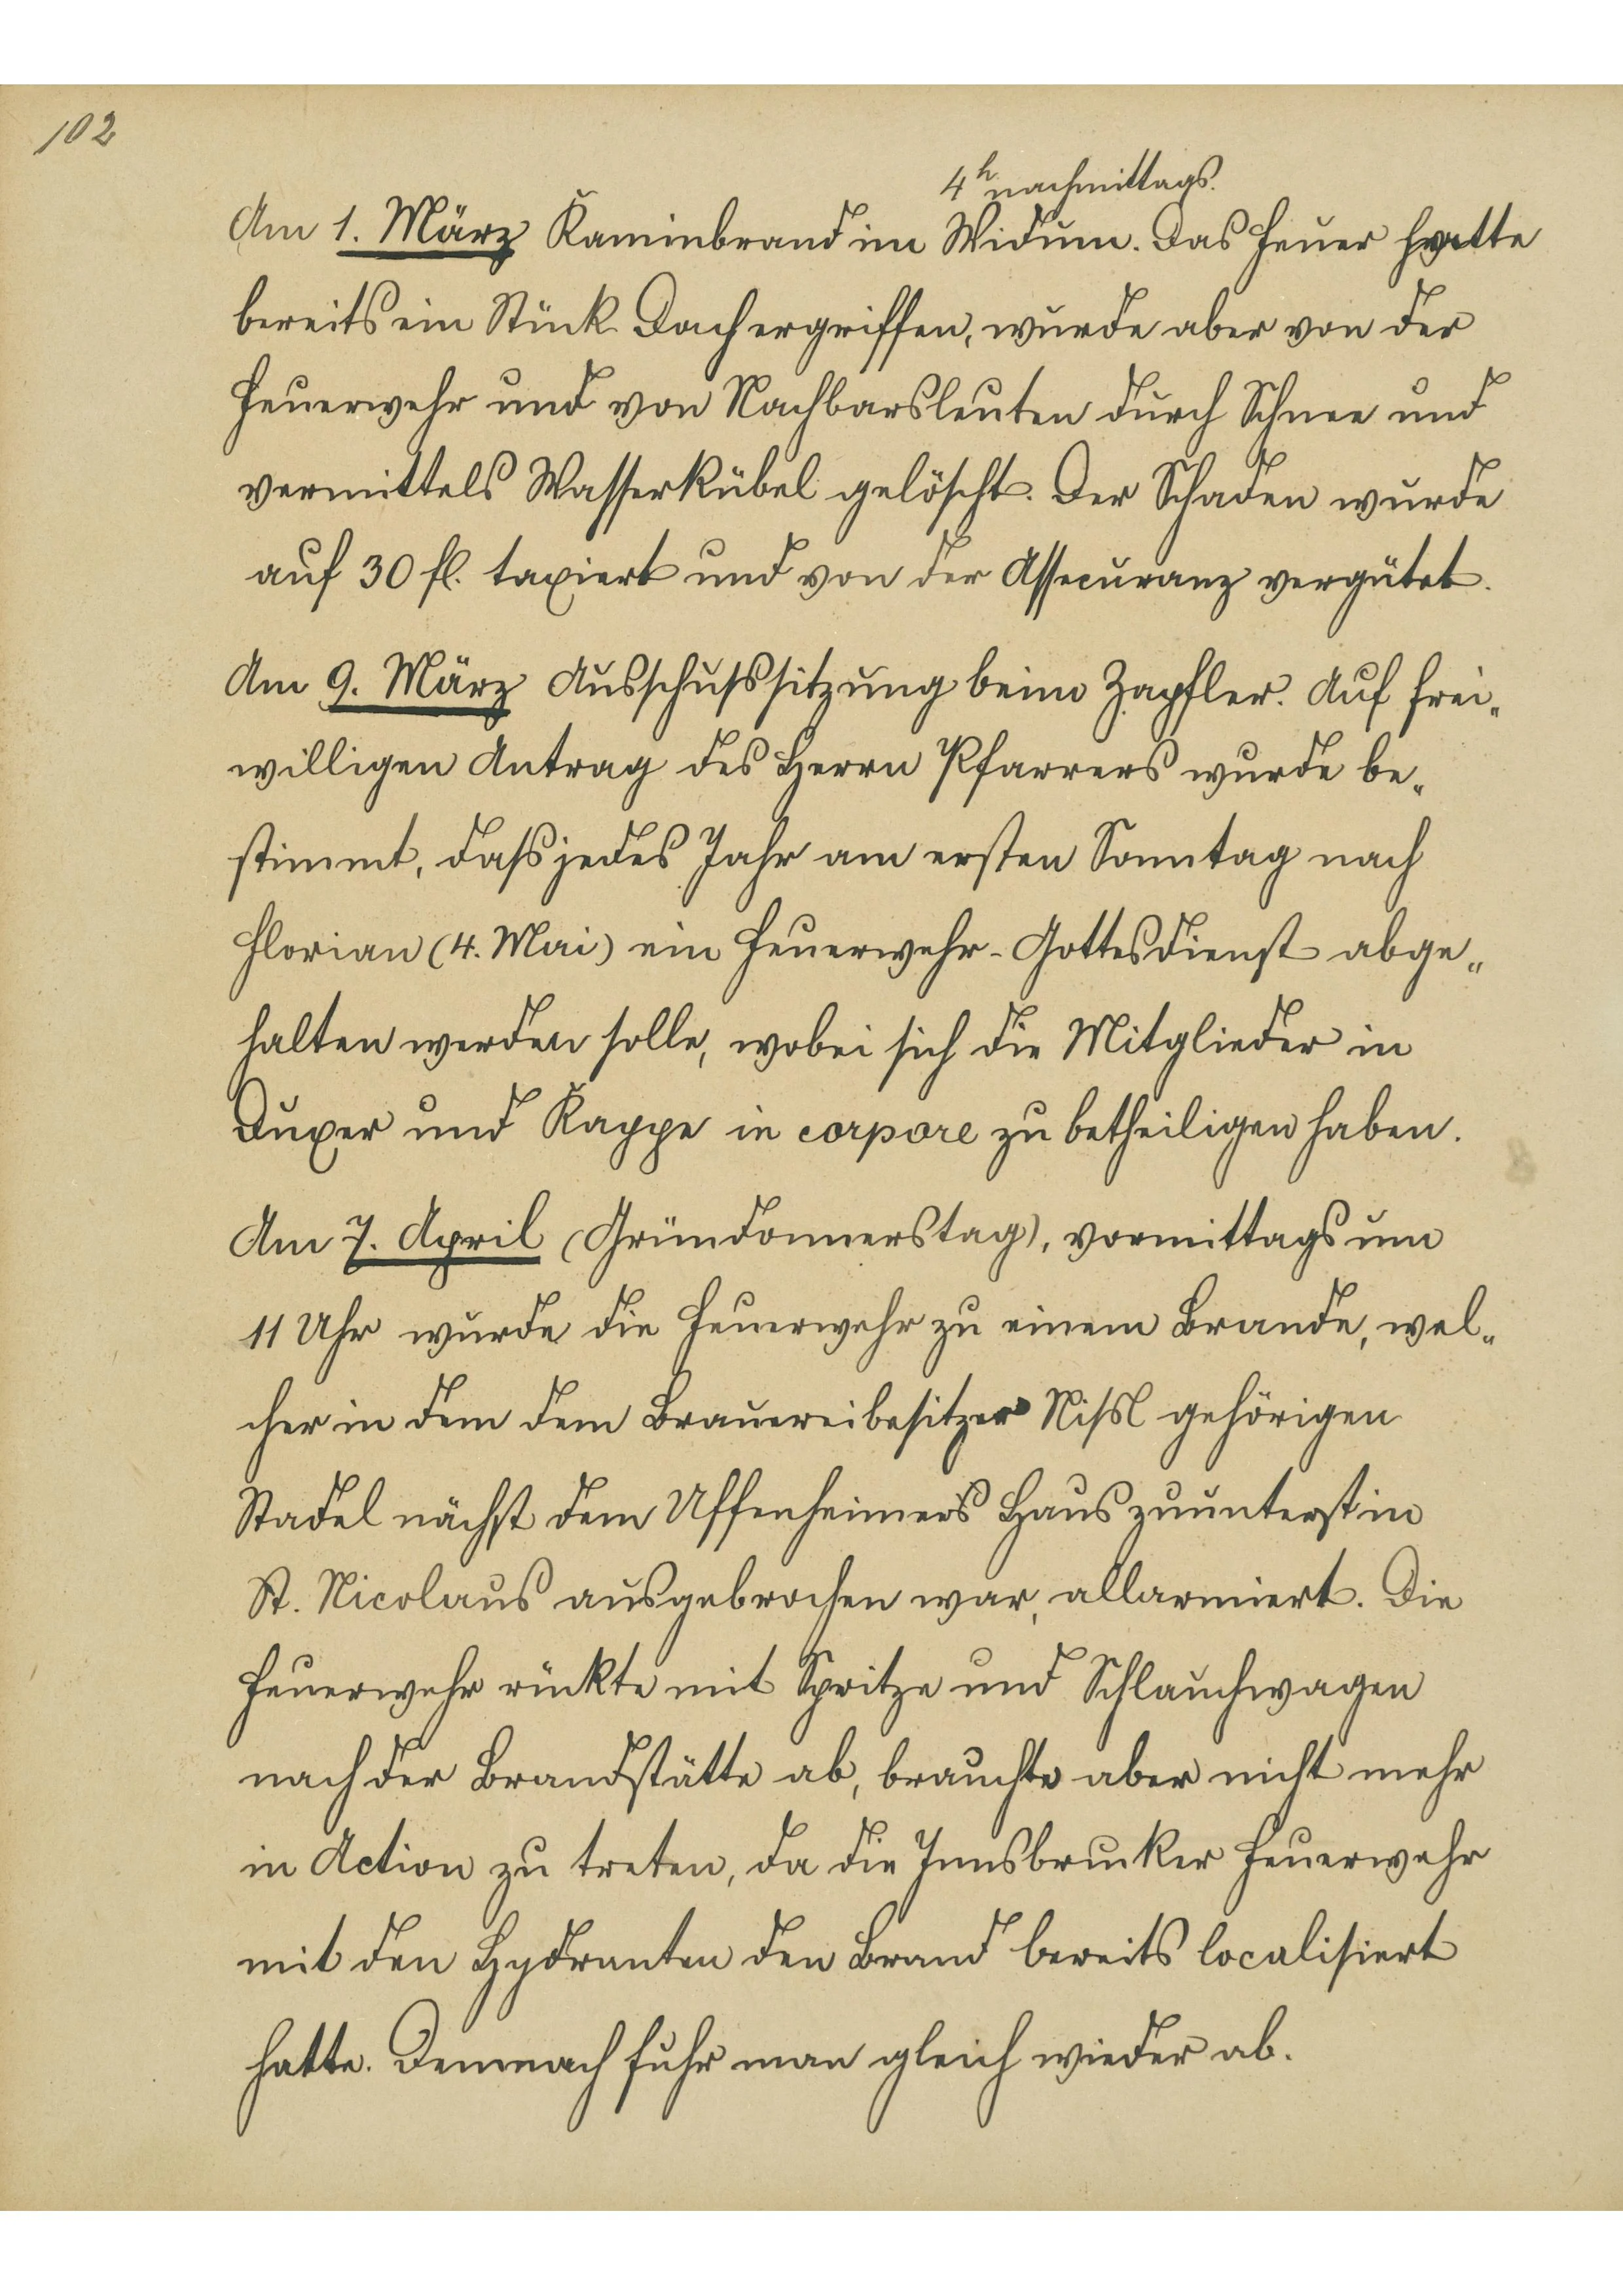 102
4h nachmittags.
Am 1. März Kaminbrand im Widum. Das Feuer hatte
bereits ein Stück Dach ergriffen, wurde aber von der
Feuerwehr und von Nachbarsleuten durch Schnee und
vermittels Wasserkübel gelöscht. Der Schaden wurde
auf 30 fl. taxiert und von der Assecuranz vergütet.
Am 9. März Ausschußsitzung beim Zapfler. Auf frei„
willigen Antrag des Herrn Pfarrers wurde be„
stimmt, daß jedes Jahr am ersten Sonntag nach
Florian (4. Mai) ein Feuerwehr-Gottesdienst abge„
halten werden solle, wobei sich die Mitglieder in
Duxer und Kappe in corpore zu betheiligen haben.
Am 7. April (Gründonnerstag), vormittags um
11 Uhr wurde die Feuerwehr zu einem Brande, wel„
cher in dem dem Brauereibesitzer Nißl gehörigen
Stadel nächst dem Uffenheimers Haus zuunterst in
St. Nicolaus ausgebrochen war, allarmiert. Die
Feuerwehr rückte mit Spritze und Schlauchwagen
nach der Brandstätte ab, brauchte aber nicht mehr
in Action zu treten, da die Innsbrucker Feuerwehr
mit den Hydranten den Brand bereits localisiert
hatte. Demnach fuhr man gleich wieder ab.